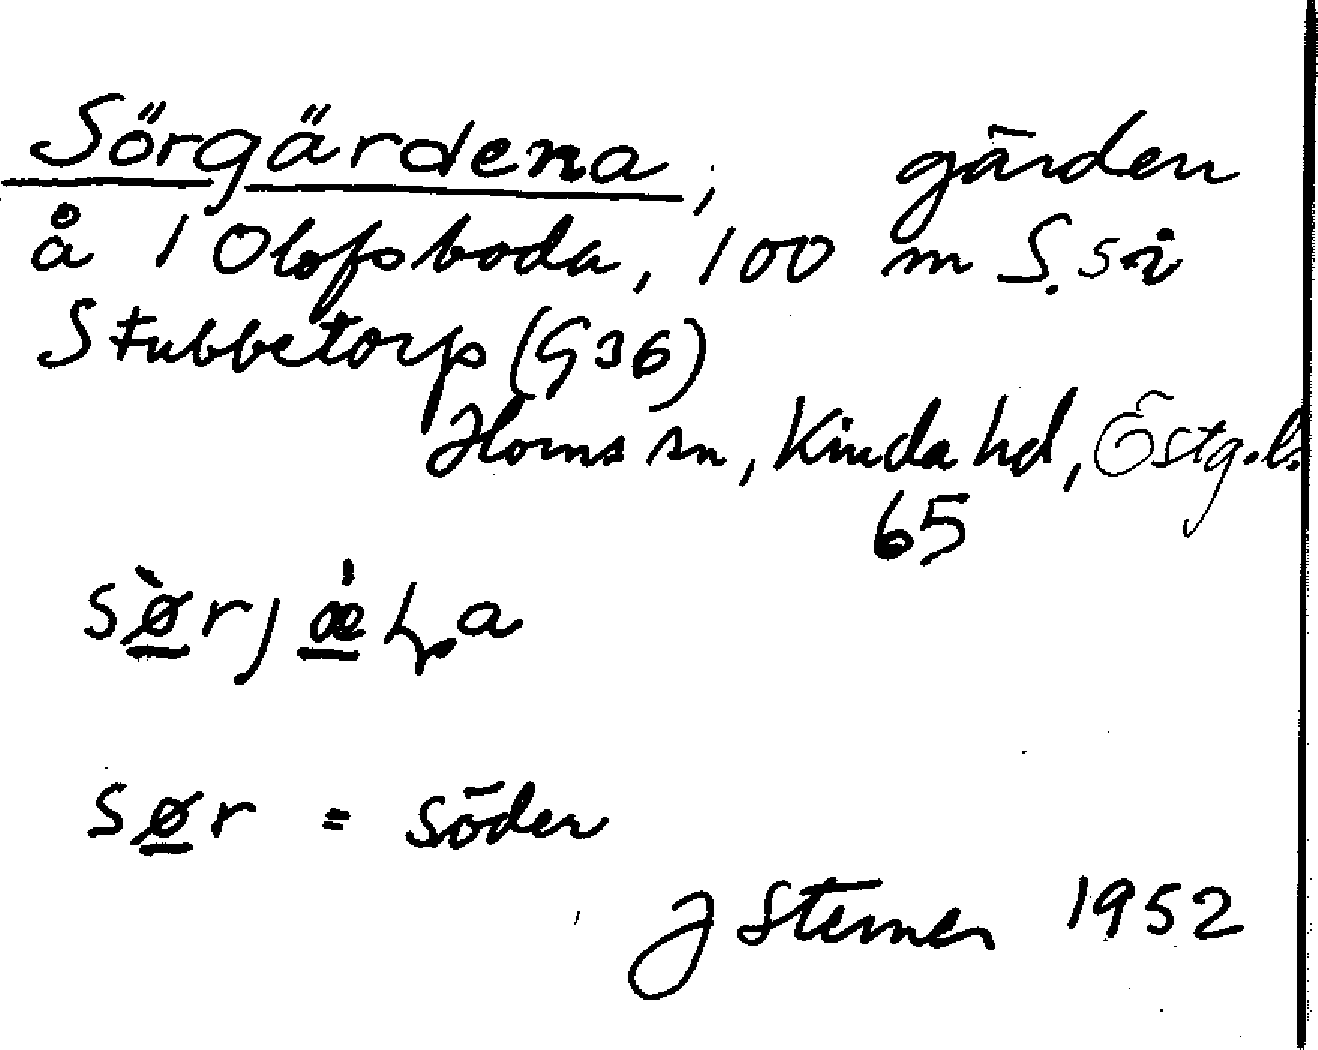 Sörgärdena, gärden
å 1 Olofsboda, 100 m S.si
Stubbetorp (G36)
Horns sn, Kinda hd, Östg.l.
65
sør = söder
J Sterner 1952